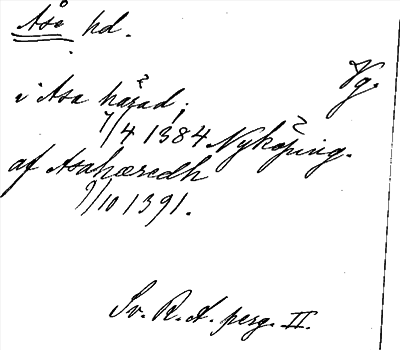 Åsa hd.
Vg.
i Asa hărad;
7/4 1384 Nyköping.
af Asahæredh
9/10 1391.
Sv. R. A. perg. II.